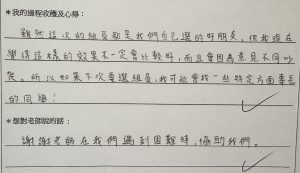 *我的過程收穫及心得:
雖然這次的組員都是我們自己選的好朋友,但我現在
覺得這樣的效果不一定會比較好,而且會因為意見不同吵
架。所以如果下次要選組員,我可能會找一些特定方面專長
的同學!
*想對老師說的話:
謝謝老師在我們遇到困難時,協助我們。